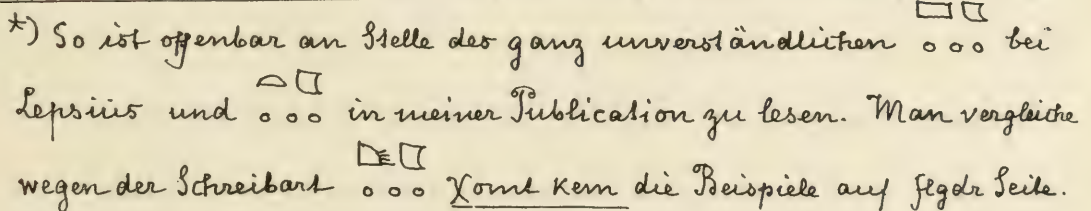 *) So ist offenbar an Stelle des ganz unverständlichen bei
Lepsius und in meiner Publication zu lesen. Man vergleiche
wegen der Schreibart Xomt Kem die Beispiele auf flgdr Seite.